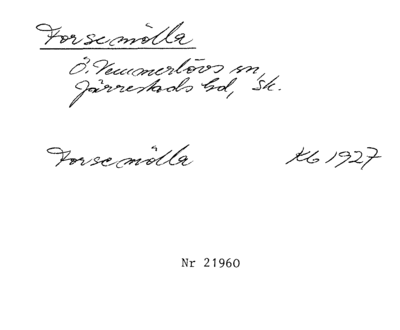 Forsemölla
Ö. Vemmerlövs sn,
Järrestads hd, Sk.
Forsemölla Kb 1927
Nr 21960